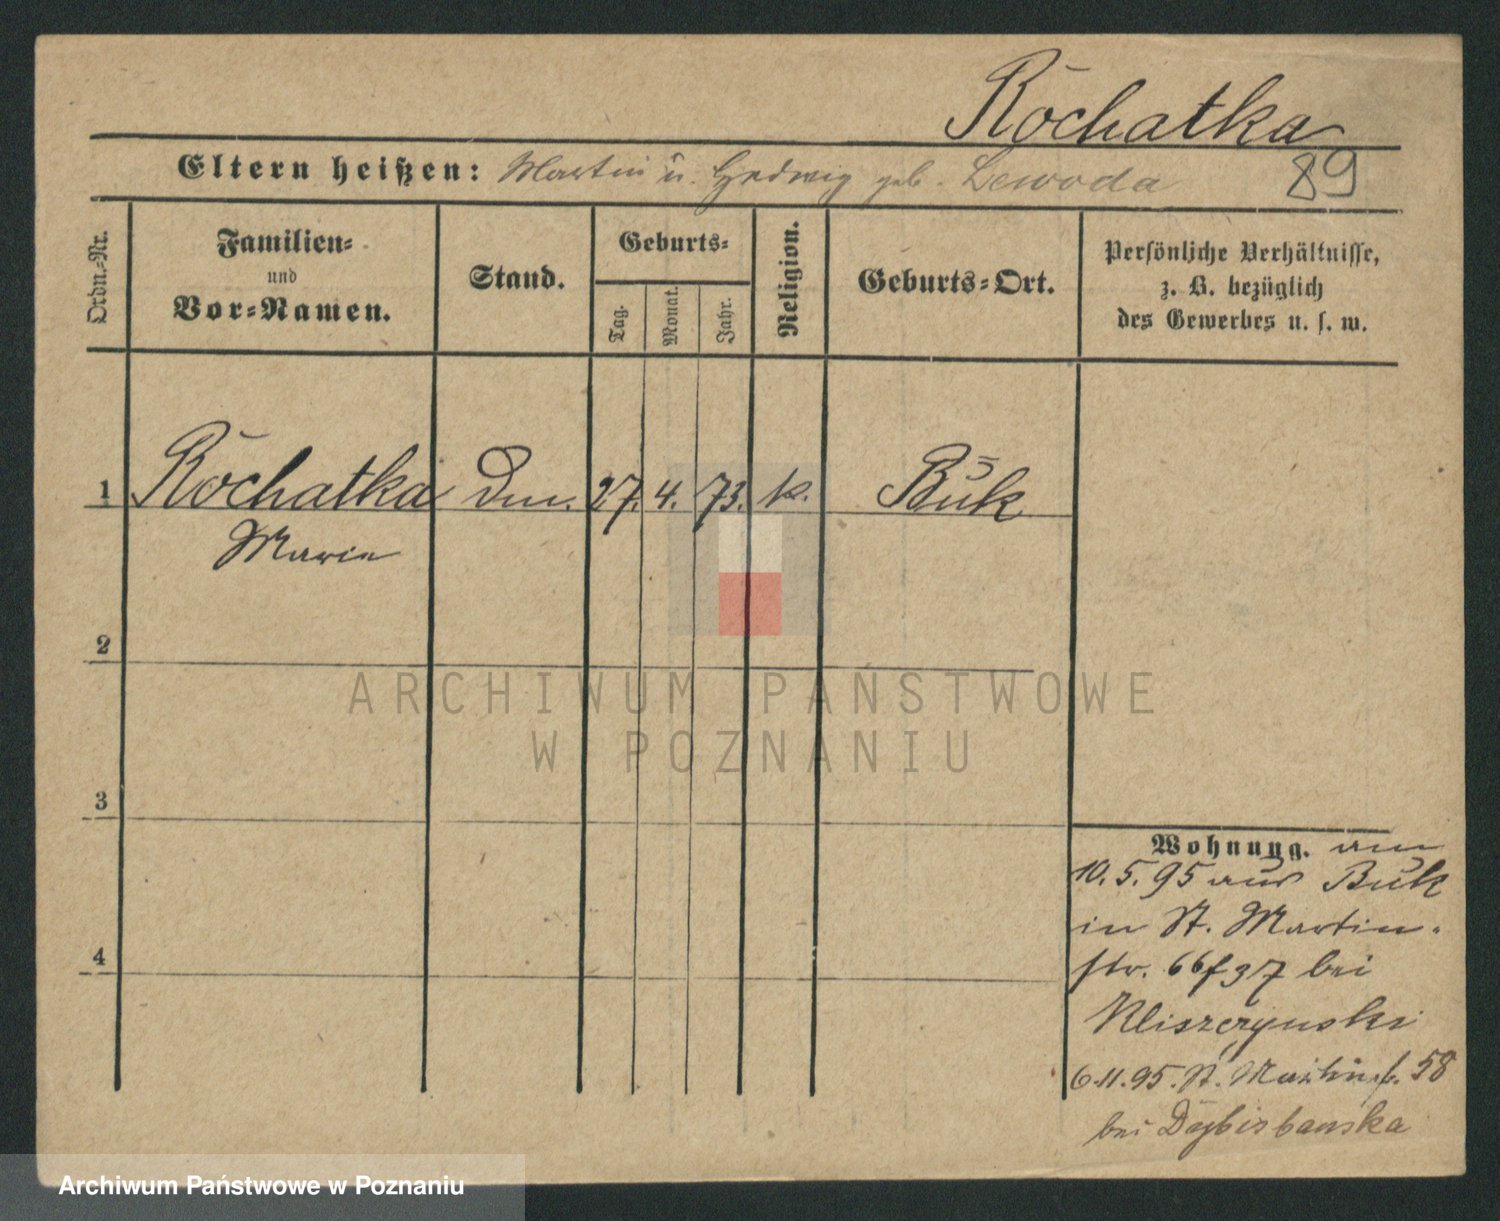 Rochatka
89
Eltern heißen: Martin u. Hedwig geb. Lewoda
Ordn.-Nr.
Familien-
und
Vor-Namen.
Stand.
Geburts-
Tag.
Monat.
Jahr.
Religion.
Geburts-Ort.
Persönliche Verhältnisse,
z. B. bezüglich
des Gewerbes u. s. w.
1 Rochatka 27. 4. 73. k. Buk
Marie
2
3
4
Wohnung. am
10. 5. 95 aus Buk
in St. Martin-
str. 66 f 37 bei
Kliszczynski
6.11.95. St. Martinstr. 58
bei
ARCHIWUM PAŃSTWOWE
W POZNANIU
Archiwum Państwowe w Poznaniu